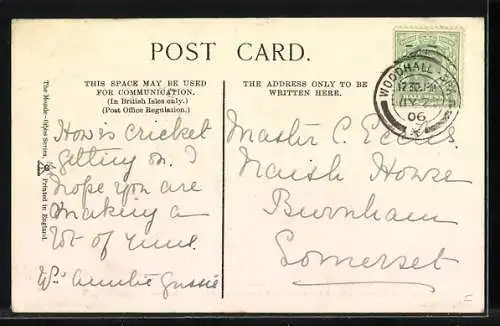 POST CARD.
THIS SPACE MAY BE USED
FOR COMMUNICATION.
(In British Isles only.)
(Post Office Regulation.)
THE ADDRESS ONLY TO BE
WRITTEN HERE.
WOODHALL
12.30 PM
JY 2
06
The Series. Printed in England.
How is cricket
getting on. I
hope you are
making a
lot of runs.
Auntie Gussie
Master C. Eccles
Naish House
Burnham
Somerset